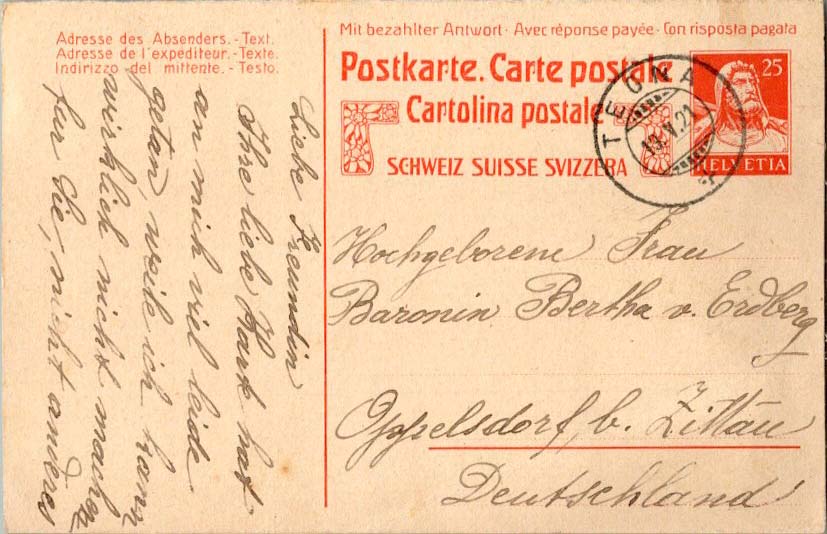 Mit bezahlter Antwort · Avec réponse payée · Con risposta pagata
Adresse des Absenders. - Text.
Adresse de l'expéditeur. - Texte.
Indirizzo del mittente. - Testo.
Postkarte. Carte postale
Cartolina postale
SCHWEIZ SUISSE SVIZZERA
25
HELVETIA
TEGNA
19.V.21
Hochgeborene Frau
Baronin Bertha v. Erdberg
Oppelsdorf, b. Zittau
Deutschland
Liebe Freundin
Ihre liebe Kart hat
an mich viel leide
getan, weile ich kann
wirklich nicht machen
für Sie, nicht anderes